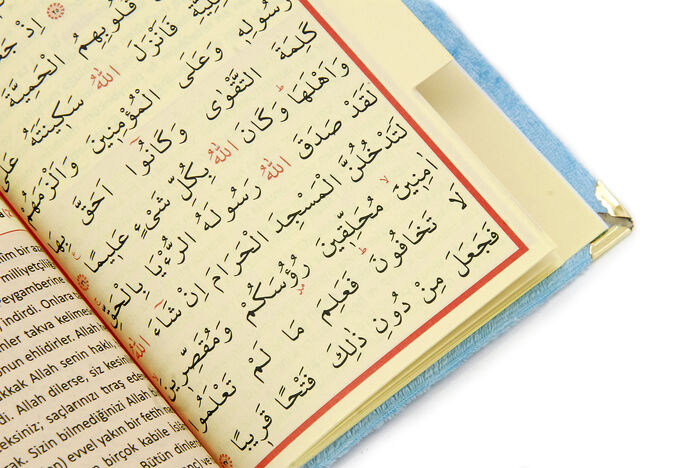 اِذْ
قُلُوبِهِمُ الْحَمِيَّةَ
فَاَنْزَلَ اللّٰهُ سَكِينَتَهُ عَلٰى
رَسُولِهِ وَعَلَى الْمُؤْمِنِينَ وَاَلْزَمَهُمْ
كَلِمَةَ التَّقْوٰى وَكَانُٓوا اَحَقَّ بِهَا
وَاَهْلَهَاۜ وَكَانَ اللّٰهُ بِكُلِّ شَيْءٍ عَلِيمًا
لَقَدْ صَدَقَ اللّٰهُ رَسُولَهُ الرُّءْيَا بِالْحَقِّ
لَتَدْخُلُنَّ الْمَسْجِدَ الْحَرَامَ اِنْ شَٓاءَ اللّٰهُ
اٰمِنِينَۙ مُحَلِّقِينَ رُؤُسَكُمْ وَمُقَصِّرِينَ
لَا تَخَافُونَۜ فَعَلِمَ مَا لَمْ تَعْلَمُوا
فَجَعَلَ مِنْ دُونِ ذٰلِكَ فَتْحًا قَرِيبًا
bir az
milliyetçiliğ
eygamberine
indirdi. Onlara
nler takva kelime
unun ehlidirler. Allah
kkak Allah senin hakl
di. Allah dilerse, siz kesin
eksiniz; saçlarınızı tıraş ede
Sizin bilmediğinizi Allah
evvel yakın bir fetih
birçok kabile
Bütün dinler